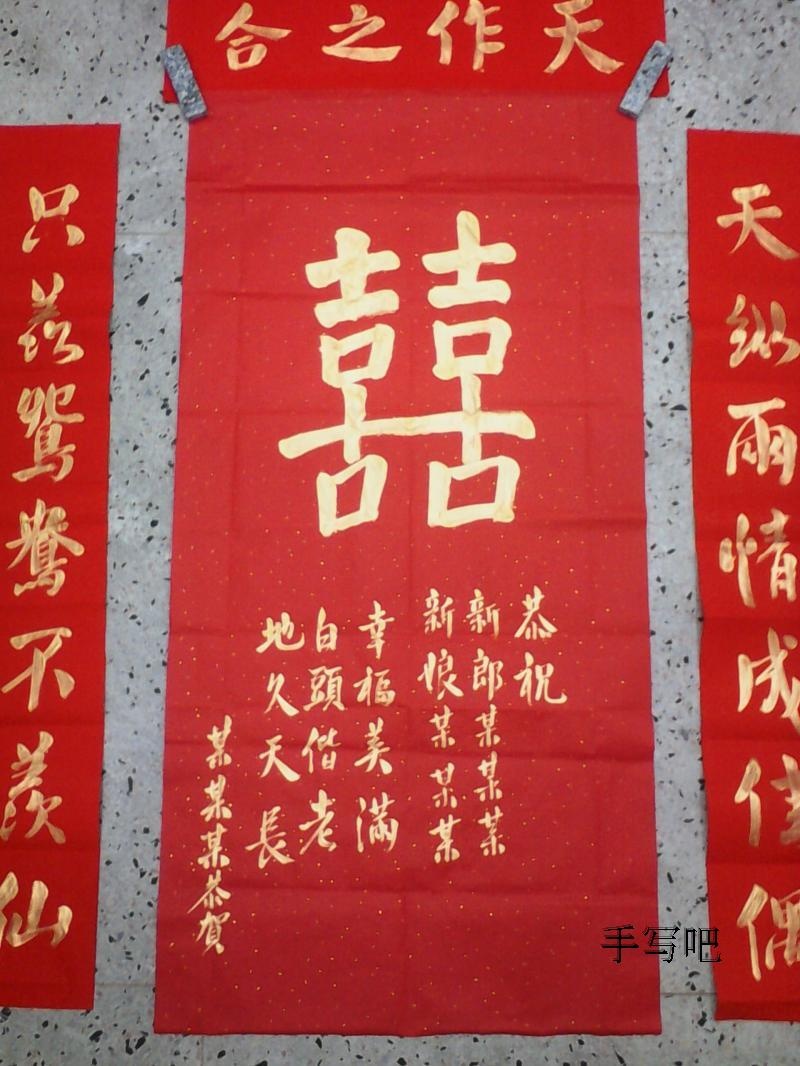 天作之合
天纵兩情成佳偶
囍
恭祝
新郎某某某
新娘某某某
幸福美滿
白頭偕老
地久天長
某某某恭賀
只羡鴛鴦不羨仙
手写吧